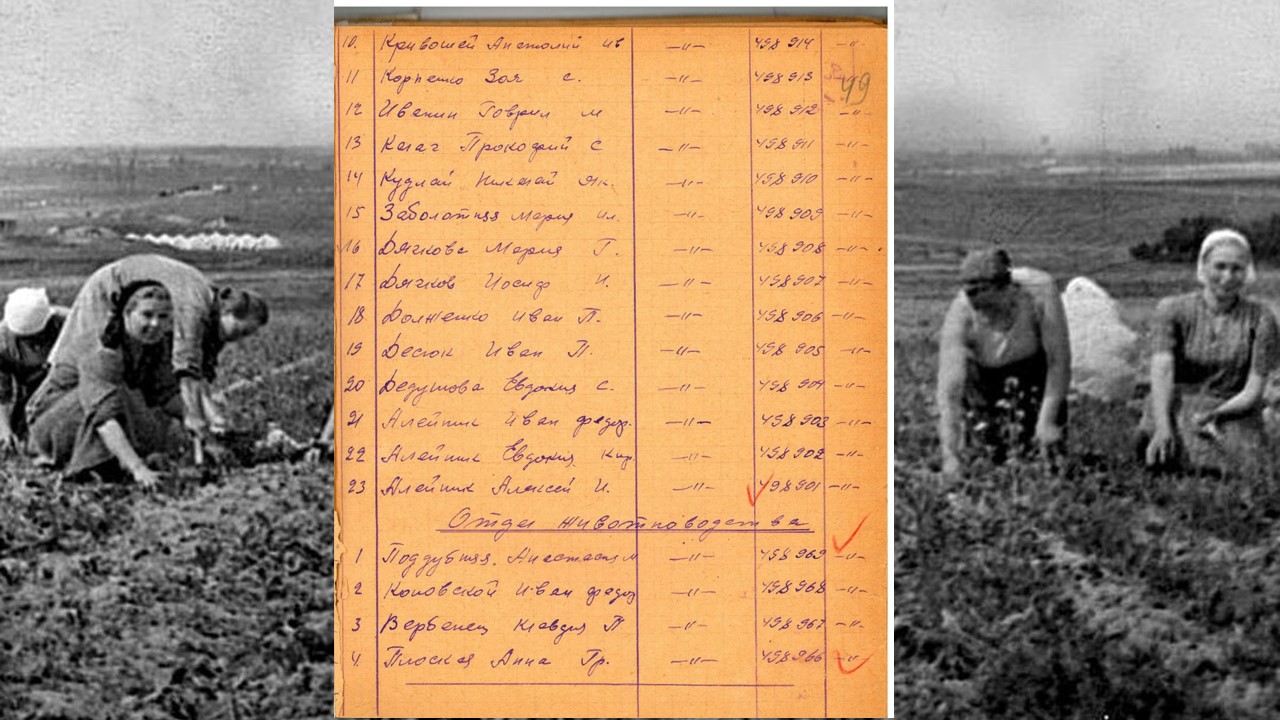 10. Кривошей Анатолий ив —"— 498 914 —"—
11 Корненко Зоя с. —"— 498 913
49
12 Иванин Гаврил м —"— 498 912 —"—
13 Прокофий с —"— 498 911 —"—
14 Кудлай Николай Як. —"— 498 910 —"—
15 Заболотняя Мария ил. —"— 498 909 —"—
16 Дячкова Мария Г. —"— 498 908 —"—
17 Дячков Иосиф И. —"— 498 907 —"—
18 Долженко Иван П. —"— 498 906 —"—
19 Десюк Иван П. —"— 498 905 —"—
20 Дедушова Евдокия с. —"— 498 904 —"—
21 Алейник Иван федор. —"— 498 903 —"—
22 Алейник Евдокия Кир. —"— 498 902 —"—
23 Алейник Алексей И. —"— 498 901 —"—
Отдел животноводства
1 Поддубняя Анастасия М —"— 498 969 —"—
2 Коновской Иван федор —"— 498 968 —"—
3 Вербенец Клавдия П —"— 498 967 —"—
4. Плоская Анна Гр. —"— 498 966 —"—